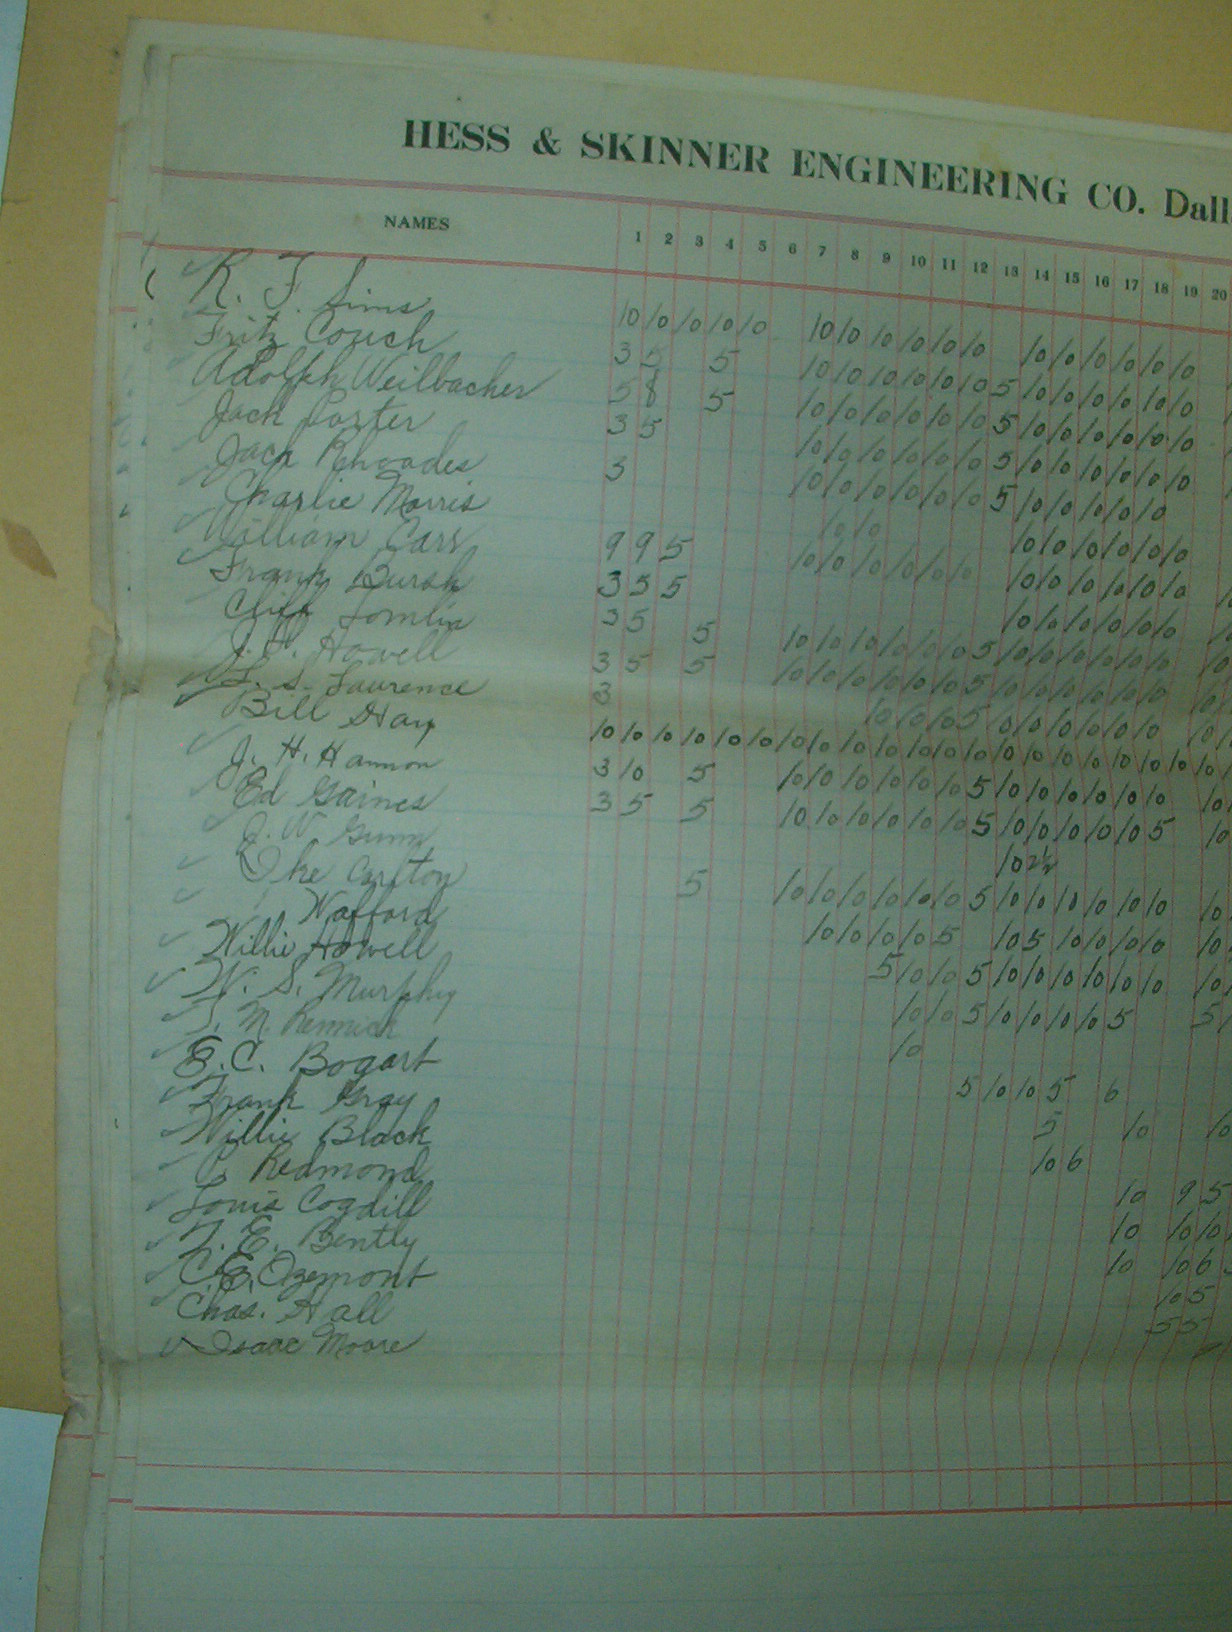 HESS & SKINNER ENGINEERING CO. Dall
NAMES 1 2 3 4 5 6 7 8 9 10 11 12 13 14 15 16 17 18 19 20
R. F. Sims 10 10 10 10 10 10 10 10 10 10 10 10 10 10 10 10 10
Fritz Couch 3 5 5 10 10 10 10 10 10 5 10 10 10 10 10 10
Adolph Weilbacher 5 8 5 10 10 10 10 10 10 5 10 10 10 10 10 10
Jack Porter 3 5 10 10 10 10 10 10 5 10 10 10 10 10 10
Jack Rhoades 3 10 10 10 10 10 10 5 10 10 10 10 10
Charlie Morris 10 10 10 10 10 10 10 10
William Carr 9 9 5 10 10 10 10 10 10 10 10 10 10 10 10
Frank Bursh 3 5 5 10 10 10 10 10 10
Cliff Tomlin 3 5 5 10 10 10 10 10 10 5 10 10 10 10 10 10
J. H. Howell 3 5 5 10 10 10 10 10 10 5 10 10 10 10 10 10
L. S. Laurence 3 10 10 10 5 10 10 10 10 10
Bill Hay 10 10 10 10 10 10 10 10 10 10 10 10 10 10 10 10 10 10 10 10
J. H. Hannon 3 10 5 10 10 10 10 10 10 5 10 10 10 10 10 10 10
Ed Gaines 3 5 5 10 10 10 10 10 10 5 10 10 10 10 10 5 10
J. W. Gunn 10 2½
Ike Carlton 5 10 10 10 10 10 10 5 10 10 10 10 10 10 10
Wafford 10 10 10 10 5 10 5 10 10 10 10 10
Willie Howell 5 10 10 5 10 10 10 10 10 10 10
W. S. Murphy 10 10 5 10 10 10 10 5 5
T. M. Rennick 10
E. C. Bogart 5 10 10 5 6
Frank Gray 5 10 10
Willie Black 10 6
P. Redmond 10 9 5
Louis Cogdill 10 10 10
T. E. Bently 10 10 6
C. E. Ozemont 10 5
Chas. Hall 5 5
Isaac Moore